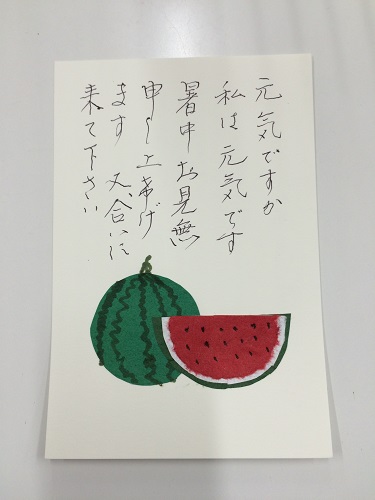 元気ですか
私は元気です
暑中お見無
申し上げ
ます 又、合いに
来て下さい